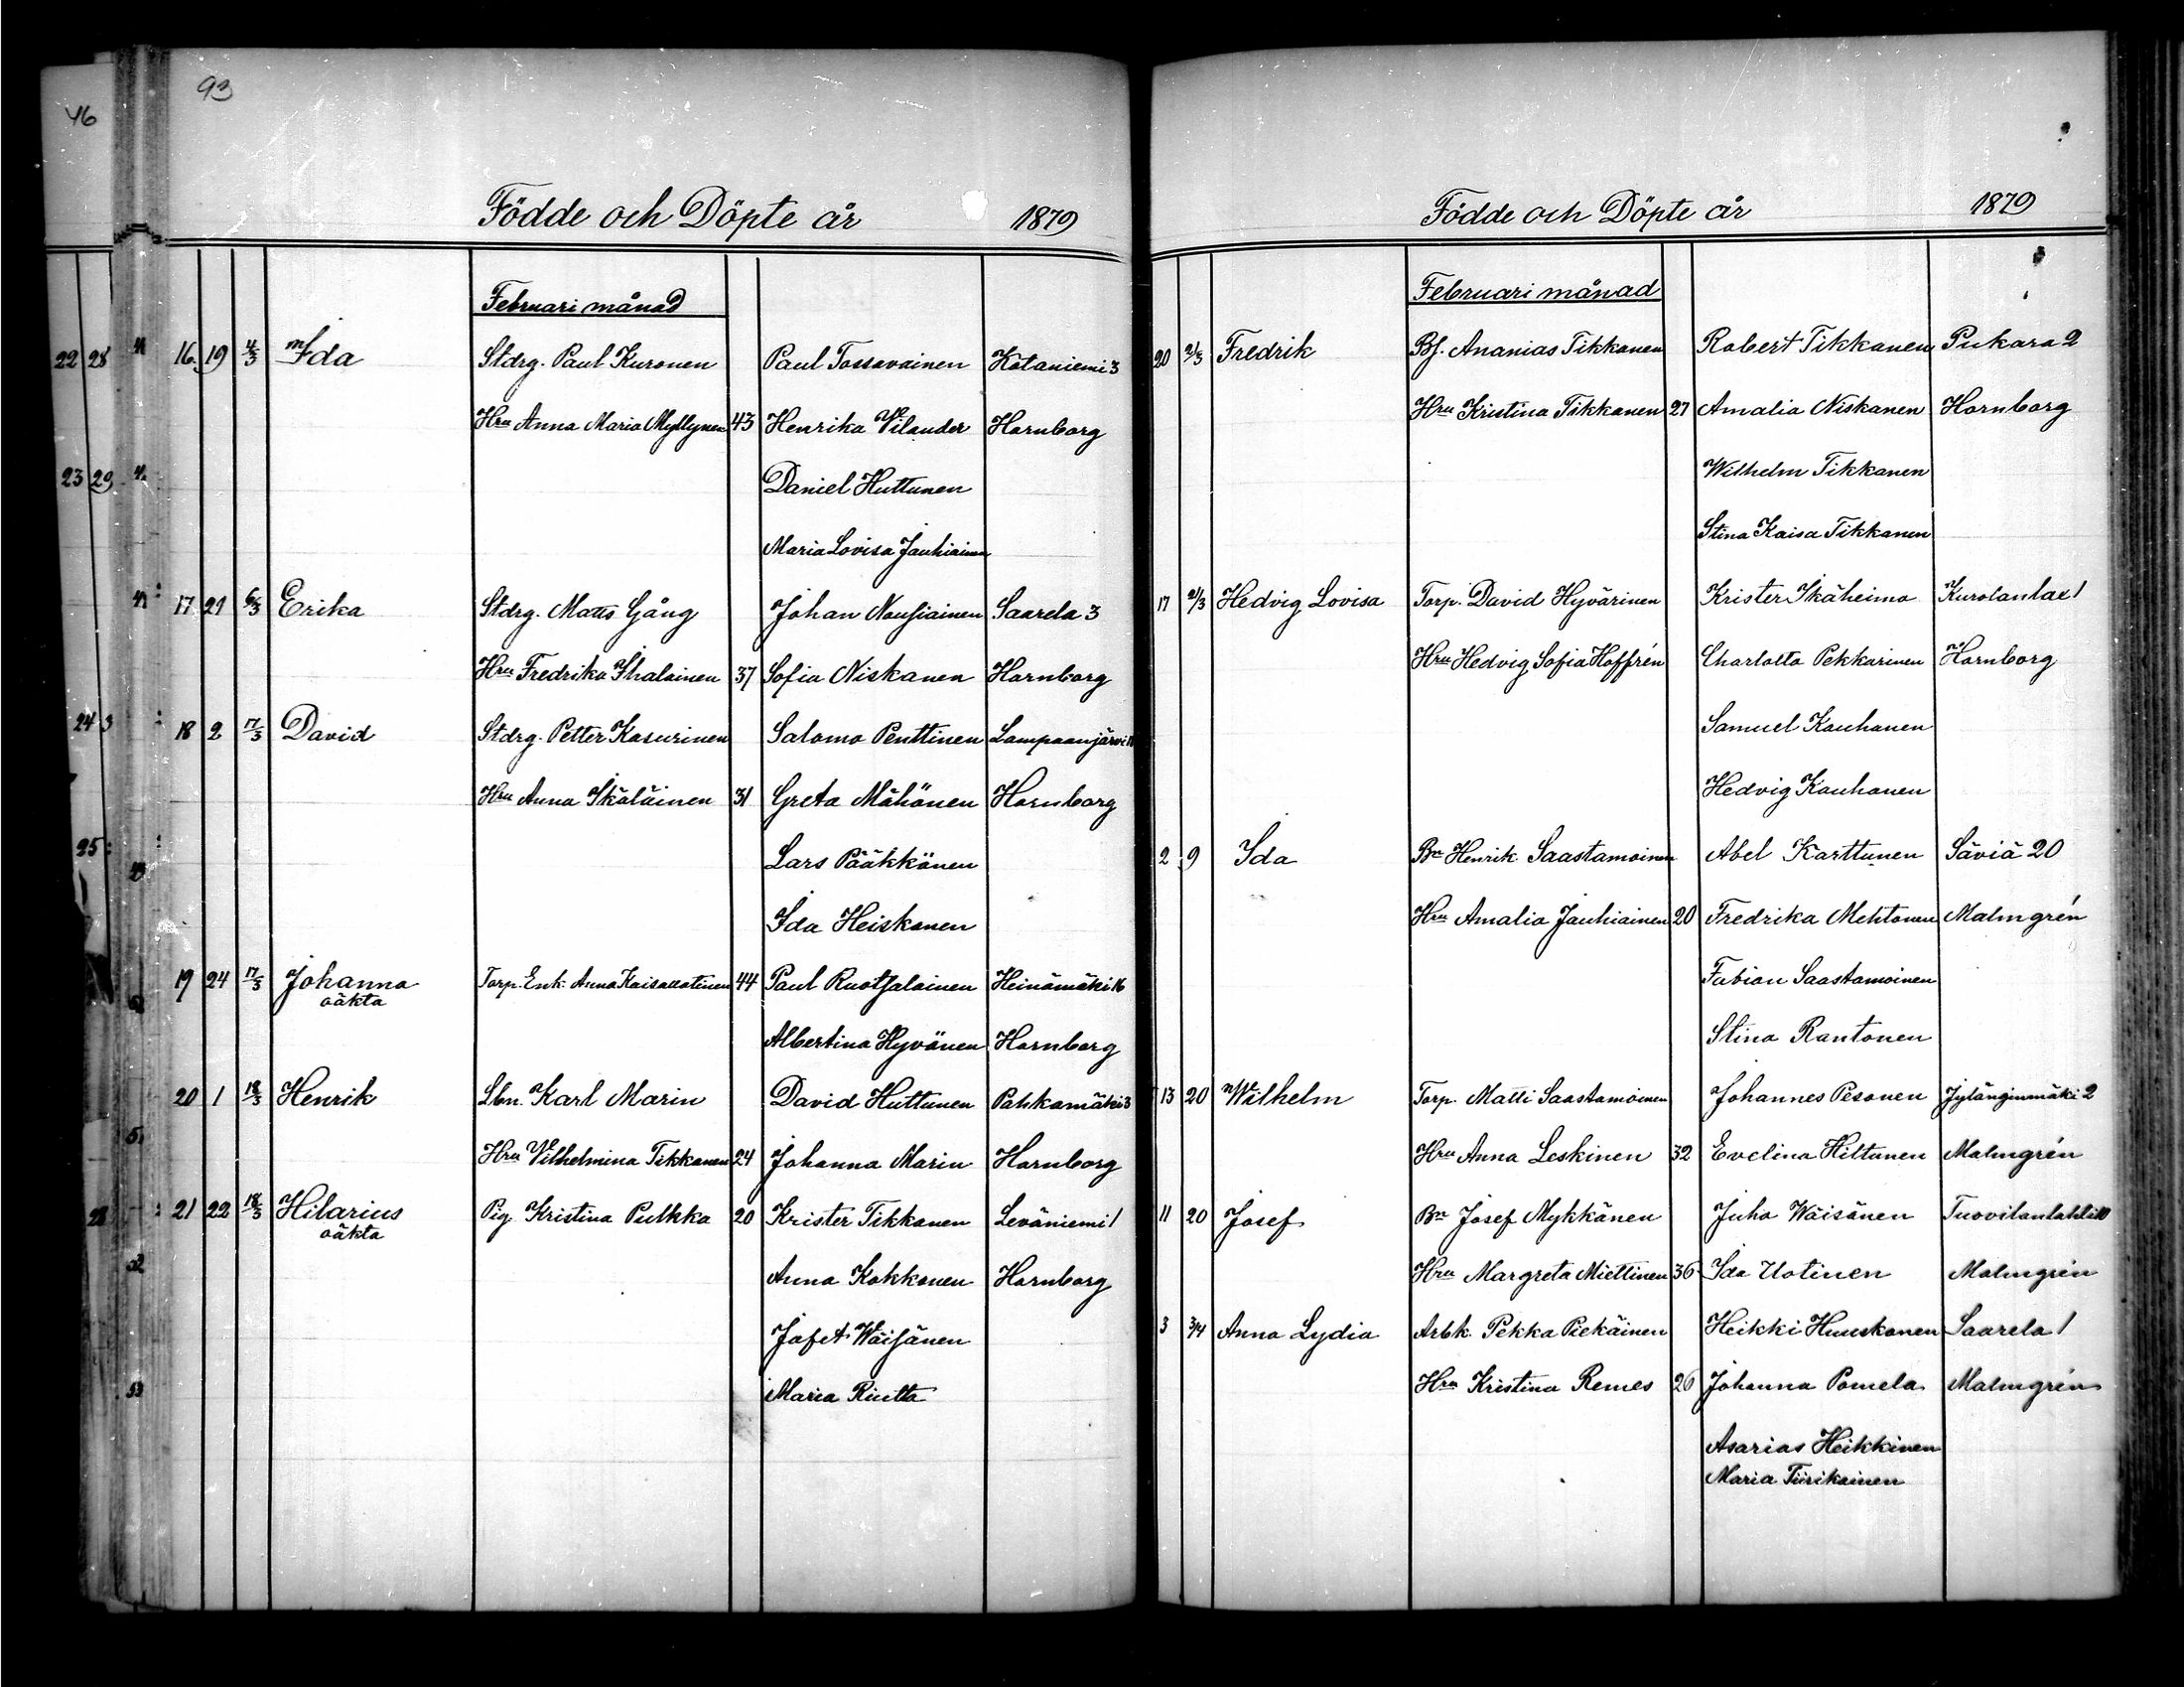 93
46
Födde och Döpte år 1879
Februari månad
22 28 16 19 4/3 Ida Stdrg. Paul Kuronen Paul Tossavainen Kotaniemi 3
Hru Anna Maria Myllynen 43 Henrika Vilander Hornborg
23 29 Daniel Huttunen
Maria Lovisa Jauhiainen
17 21 6/3 Erika Stdrg. Matts Gång Johan Nousiainen Saarela 3
Hru Fredrika Ihalainen 37 Sofia Niskanen Hornborg
24 3 18 2 17/3 David Stdrg. Petter Kasurinen Salomo Penttinen Lampaanjärvi
Hru Anna Ikäläinen 31 Greta Mähönen Hornborg
25 Lars Pääkkönen
Ida Heiskanen
19 24 17/3 Johanna Torp. Enk. Anna Kaisa 44 Paul Ruotsalainen Heinämäki 16
oäkta
Albertina Hyvönen Hornborg
20 1 18/3 Henrik Lbn. Karl Marin David Huttunen Pahkamäki 3
Hru Vilhelmina Tikkanen 24 Johanna Marin Hornborg
28 21 22 18/3 Hilarius Pig. Kristina Pulkka 20 Krister Tikkanen Leväniemi 1
oäkta
Anna Kokkonen Hornborg
Jafet Wäisänen
Maria Riutta
Födde och Döpte år 1879
Februari månad
20 21/3 Fredrik Bf. Ananias Tikkanen Robert Tikkanen Pukara 2
Hru Kristina Tikkanen 27 Amalia Niskanen Hornborg
Wilhelm Tikkanen
Stina Kaisa Tikkanen
17 21/3 Hedvig Lovisa Torp. David Hyvärinen Krister Ikäheimo Kurolanlax 1
Hru Hedvig Sofia Hoffrén Charlotta Pekkarinen Hornborg
Samuel Kauhanen
Hedvig Kauhanen
2 9 Ida Bn Henrik Saastamoinen Abel Karttunen Säviä 20
Hru Amalia Jauhiainen 20 Fredrika Mehtonen Malmgrén
Fabian Saastamoinen
Stina Rantonen
13 20 Wilhelm Torp. Matti Saastamoinen Johannes Pesonen Jylänginmäki 2
Hru Anna Leskinen 32 Evelina Hiltunen Malmgrén
11 20 Josef Bn Josef Mykkänen Juho Wäisänen Tuovilanlahti 10
Hru Margreta Miettinen 36 Ida Uotinen Malmgrén
3 3/4 Anna Lydia Arbk. Pekka Piekäinen Heikki Huuskonen Saarela 1
Hru Kristina Remes 26 Johanna Pomela Malmgrén
Asarias Heikkinen
Maria Tiirikainen